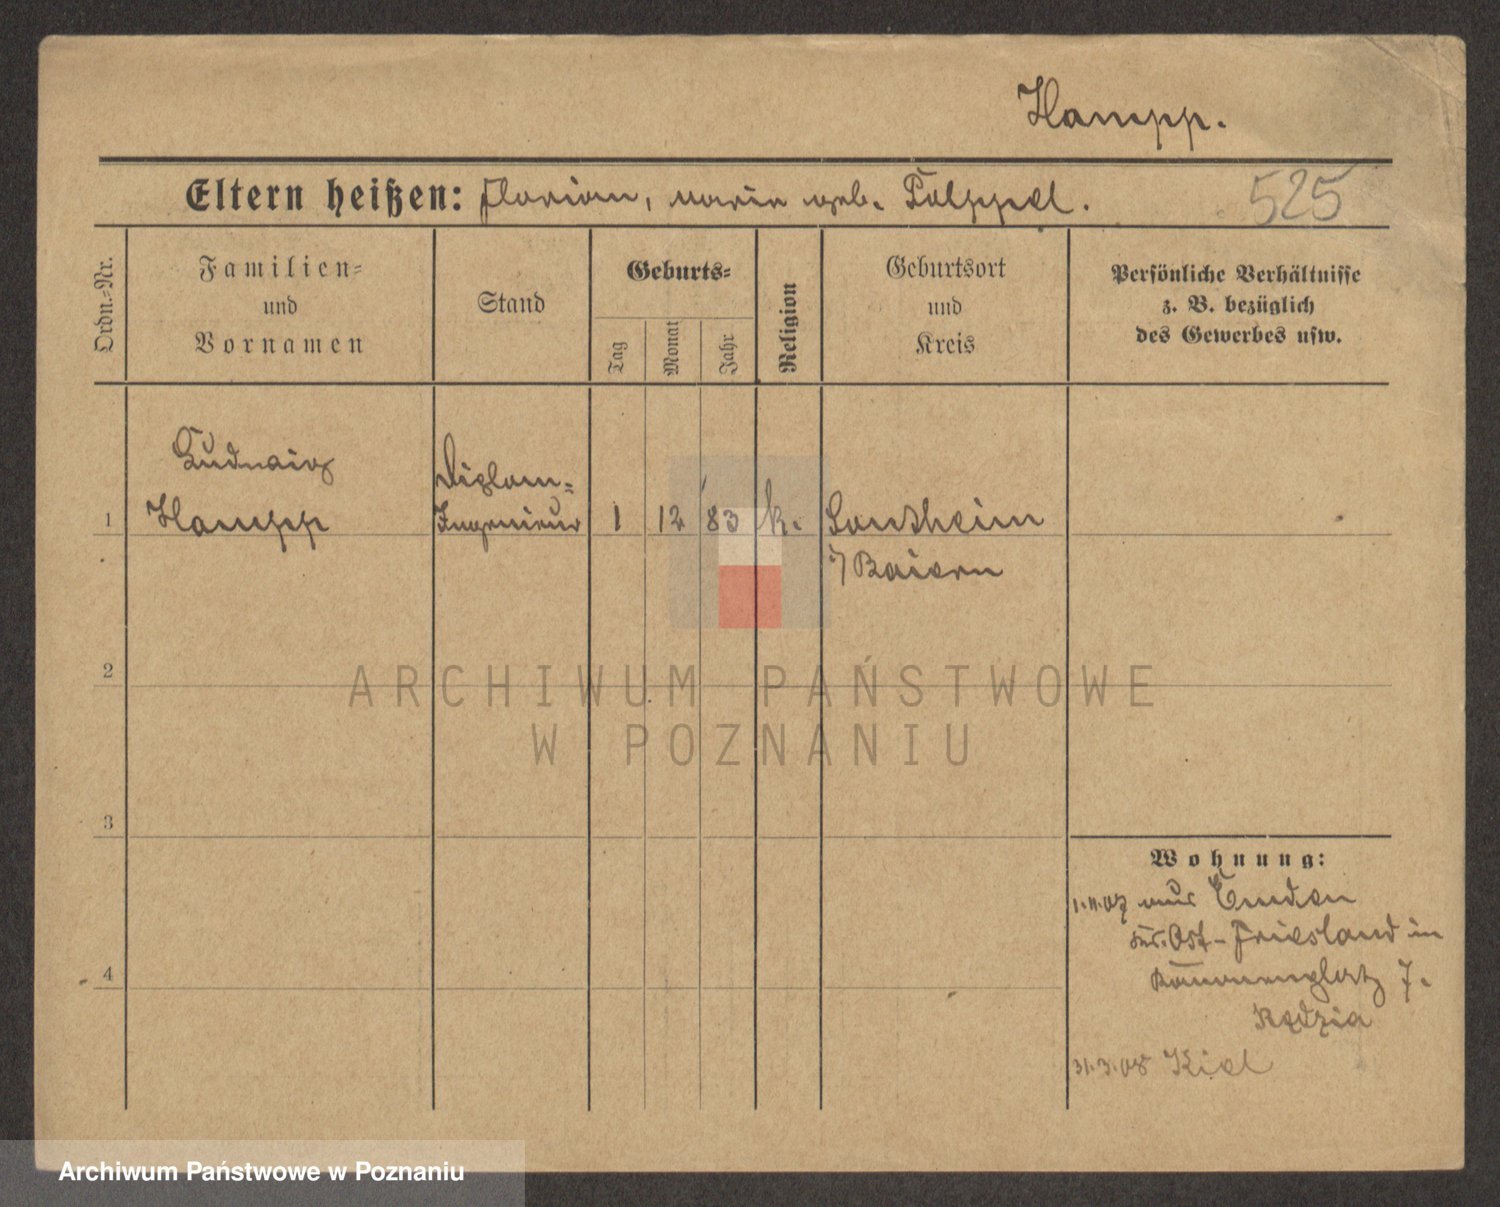 Hampp.
Eltern heißen: Florian, Marie geb.
525
Ordn.-Nr.
Familien-
und
Vornamen
Stand
Geburts-
Tag
Monat
Jahr
Religion
Geburtsort
und
Kreis
Persönliche Verhältnisse
z. B. bezüglich
des Gewerbes usw.
Ludwig
Hampp
Diplom-
Ingenieur
1
1 12 83 k.
Sontheim
i/Baiern
2
ARCHIWUM PAŃSTWOWE
W POZNANIU
3
Wohnung:
1.11.07 aus Emden
Ost-Friesland in
7.
4
31.3.08 Kiel
Archiwum Państwowe w Poznaniu